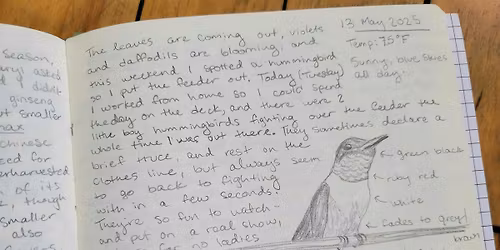 season,
asked
ginseng
but smaller
max
chinese
used for
overharvested
of its
, though
smaller
also
The leaves are coming out, violets
and daffodils are blooming, and
this weekend I spotted a hummingbird
so I put the feeder out. Today (Tuesday)
I worked from home so I could spend
the day on the deck, and there were 2
little boy hummingbirds fighting over the feeder the
whole time I was out there. They sometimes declare a
brief truce, and rest on the
clothes line, but always seem
to go back to fighting
with in a few seconds.
They're so fun to watch -
and put on a real show,
for no ladies
13 May 2025
Temp: 75°F
Sunny, blue skies
all day.
green black
ruby red
white
fades to grey/
brown